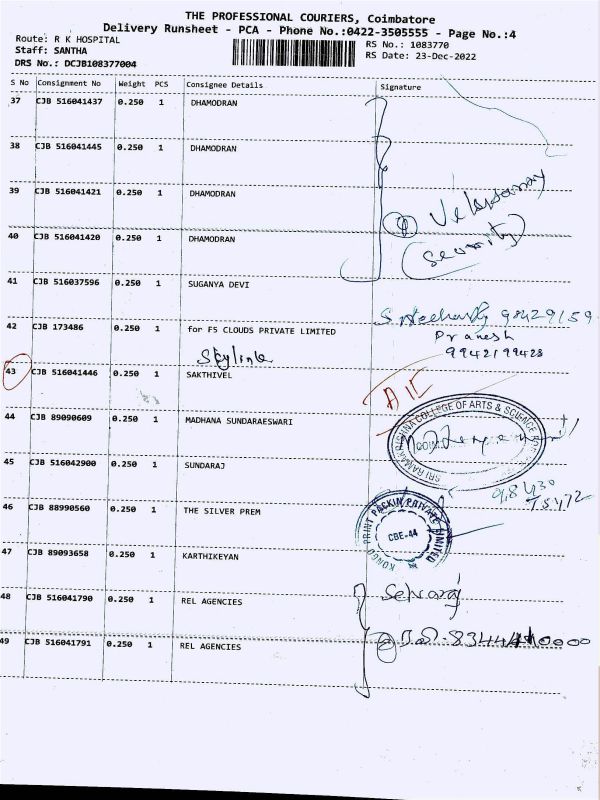 THE PROFESSIONAL COURIERS, Coimbatore
Delivery Runsheet - PCA - Phone No.:0422-3505555 - Page No.:4
Route: R K HOSPITAL
RS No.: 1083770
Staff: SANTHA
RS Date: 23-Dec-2022
DRS No.: DCJB108377004
S No Consignment No Weight PCS Consignee Details Signature
37 CJB 516041437 0.250 1 DHAMODRAN
38 CJB 516041445 0.250 1 DHAMODRAN
39 CJB 516041421 0.250 1 DHAMODRAN
(security)
40 CJB 516041420 0.250 1 DHAMODRAN
41 CJB 516037596 0.250 1 SUGANYA DEVI
42 CJB 173486 0.250 1 for F5 CLOUDS PRIVATE LIMITED
Pranesh
9942199428
Skylink
43 CJB 516041446 0.250 1 SAKTHIVEL
44 CJB 89090609 0.250 1 MADHANA SUNDARAESWARI
SRI RAMAKRISHNA COLLEGE OF ARTS & SCIENCE
45 CJB 516042900 0.250 1 SUNDARAJ
46 CJB 88990560 0.250 1 THE SILVER PREM
KONGO PRINT PACKIN PRIVATE LIMITED
CBE-44
47 CJB 89093658 0.250 1 KARTHIKEYAN
48 CJB 516041790 0.250 1 REL AGENCIES Selvaraj
49 CJB 516041791 0.250 1 REL AGENCIES